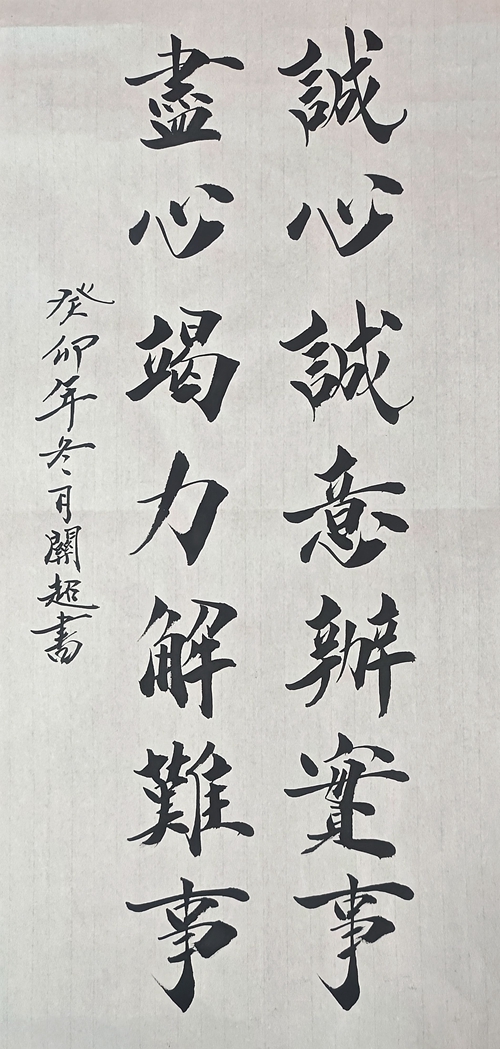 誠心誠意辦實事
盡心竭力解難事
癸卯年冬月關超書